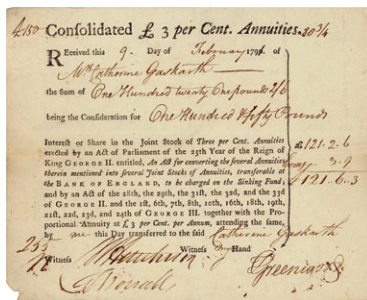 £150 Consolidated £ 3 per Cent. Annuities. 80 3/4
Received this 9. Day of February 1791
Mrs Catherine Gaskarth
the sum of One Hundred twenty One pounds 2/6
being the Consideration for One Hundred & fifty Pounds
Interest or Share in the Joint Stock of Three per Cent. Annuities
erected by an Act of Parliament of the 25th Year of the Reign of
King GEORGE II. entitled, An Act for converting the several Annuities
therein mentioned into several Joint Stocks of Annuities, transferable at
the BANK OF ENGLAND, to be charged on the Sinking Fund;
and by an Act of the 28th, the 29th, the 31st, the 32d, and the 33d
of GEORGE II. and the 1st, 6th, 7th, 8th, 10th, 16th, 18th, 19th,
21st, 22d, 23d, and 24th of GEORGE III. together with the Pro-
portional Annuity at £ 3 per Cent. per Annum, attending the same,
by me this Day transferred to the said Catherine Gaskarth
£ 121.2.6
3.9
£ 121.6.3
Witness my Hand
Witness